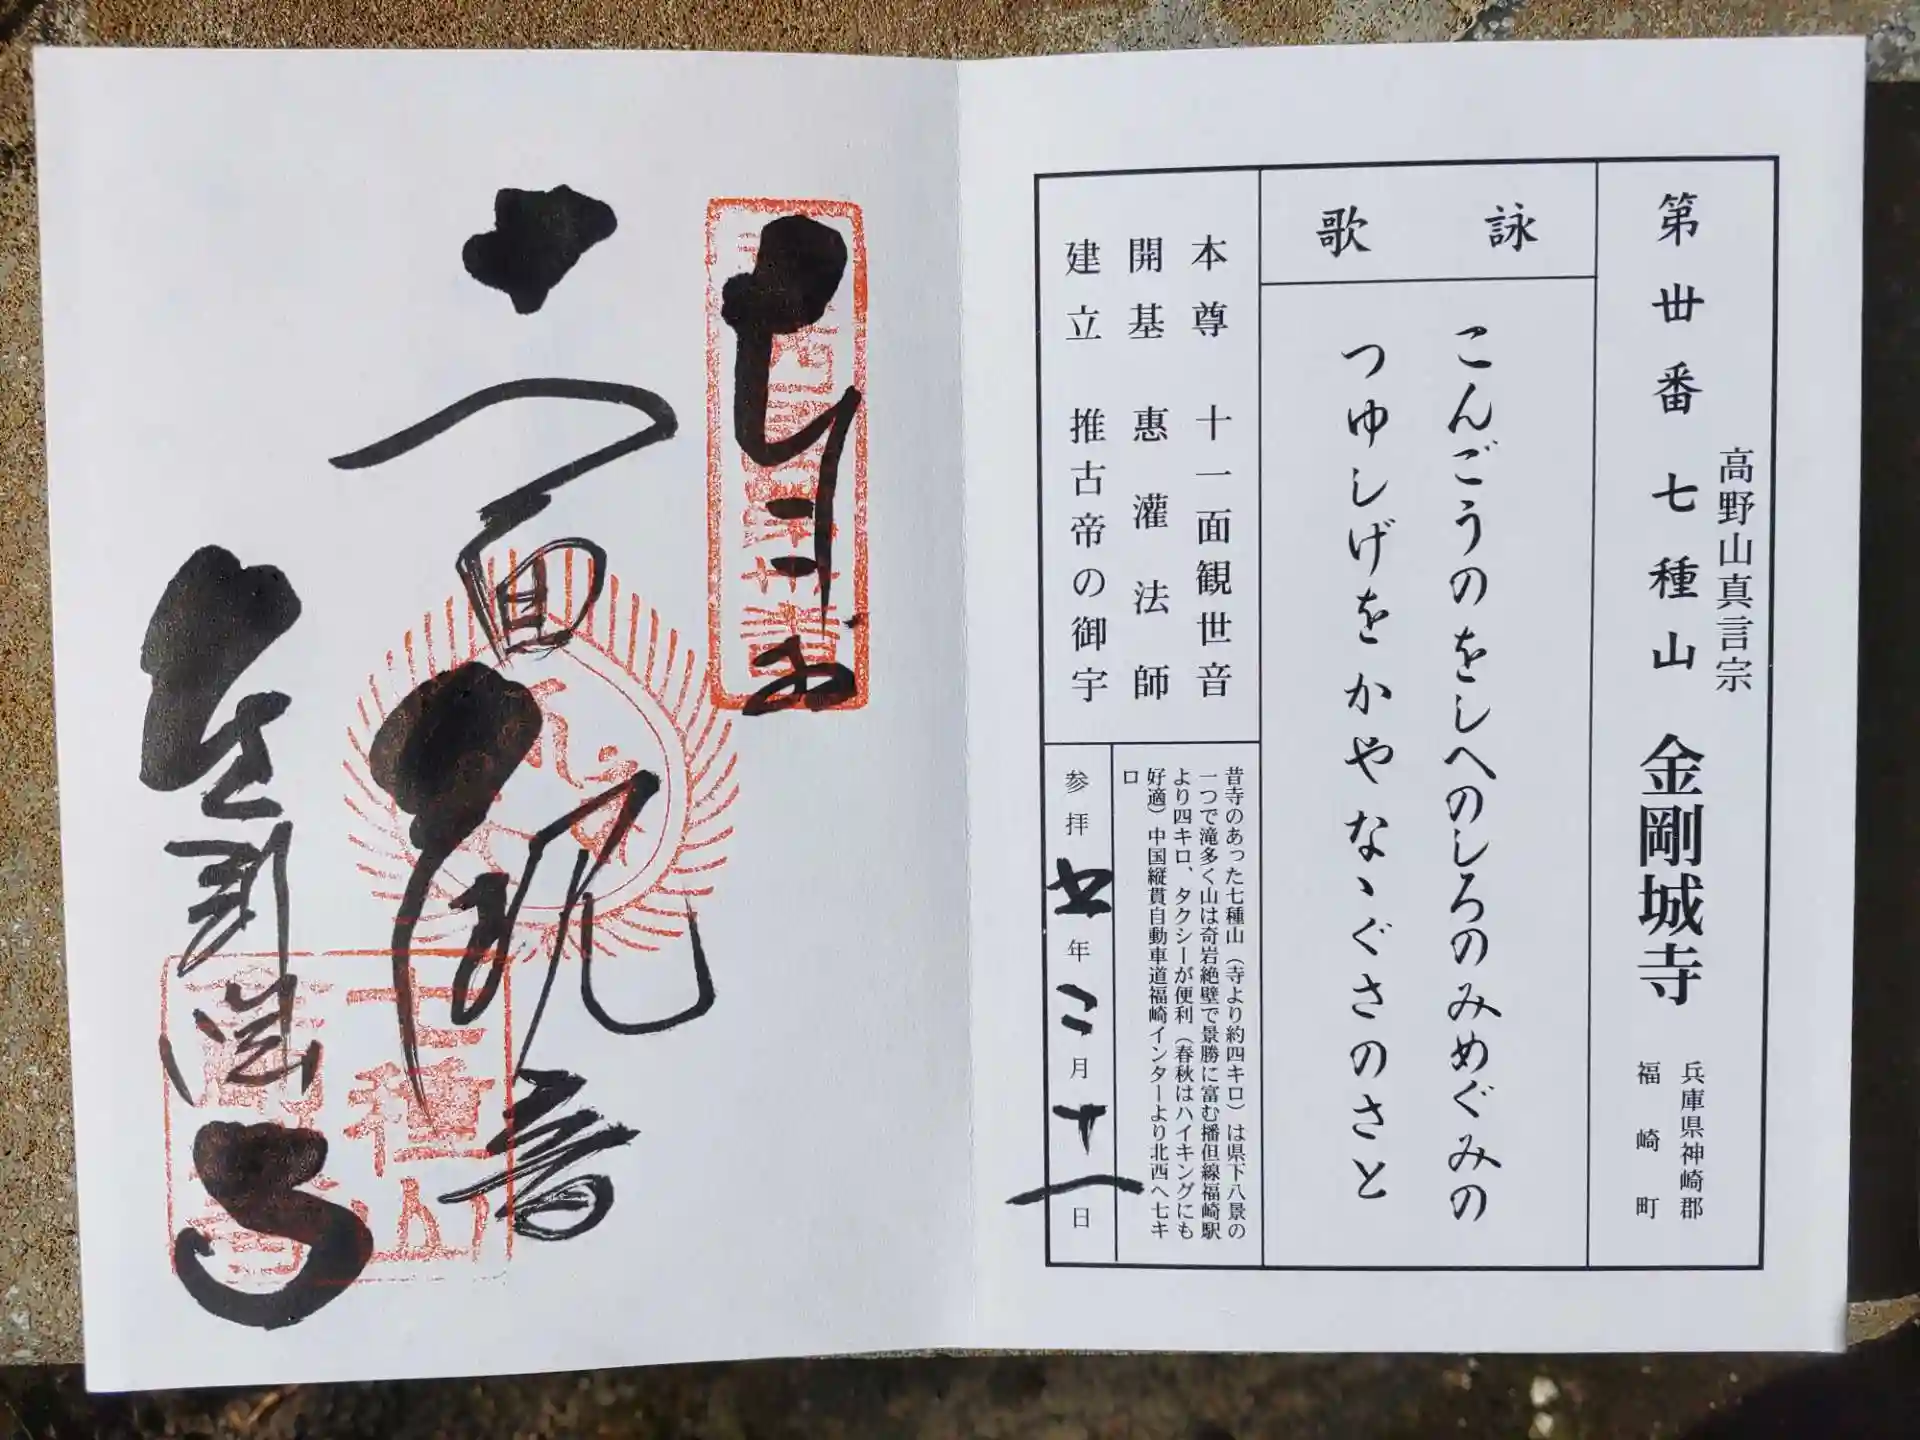 高野山真言宗
第丗番 七種山 金剛城寺
兵庫県神崎郡
福崎町
詠歌
こんごうのをしへのしろのみめぐみの
つゆしげをかやなゝぐさのさと
本尊 十一面観世音
開基 惠灌法師
建立 推古帝の御宇
昔寺のあった七種山（寺より約四キロ）は県下八景の
一つで滝多く山は奇岩絶壁で景勝に富む播但線福崎駅
より四キロ、タクシーが便利（春秋はハイキングにも
好適）中国縦貫自動車道福崎インターより北西へ七キ
ロ
参拝 五年二月十一日
十一面観音
金剛城寺
七種山